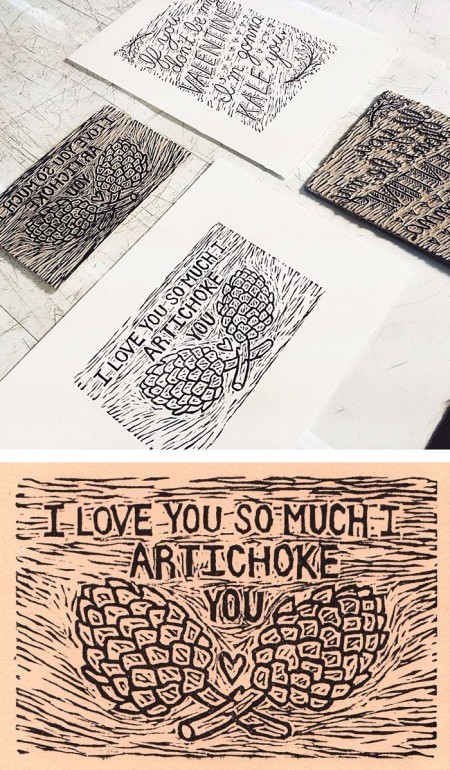 If you
don't be my
VALENTINE
I'm gonna
KALE you
I LOVE YOU SO MUCH I
ARTICHOKE
YOU
I LOVE YOU SO MUCH I
ARTICHOKE
YOU
I LOVE YOU SO MUCH I
ARTICHOKE
YOU